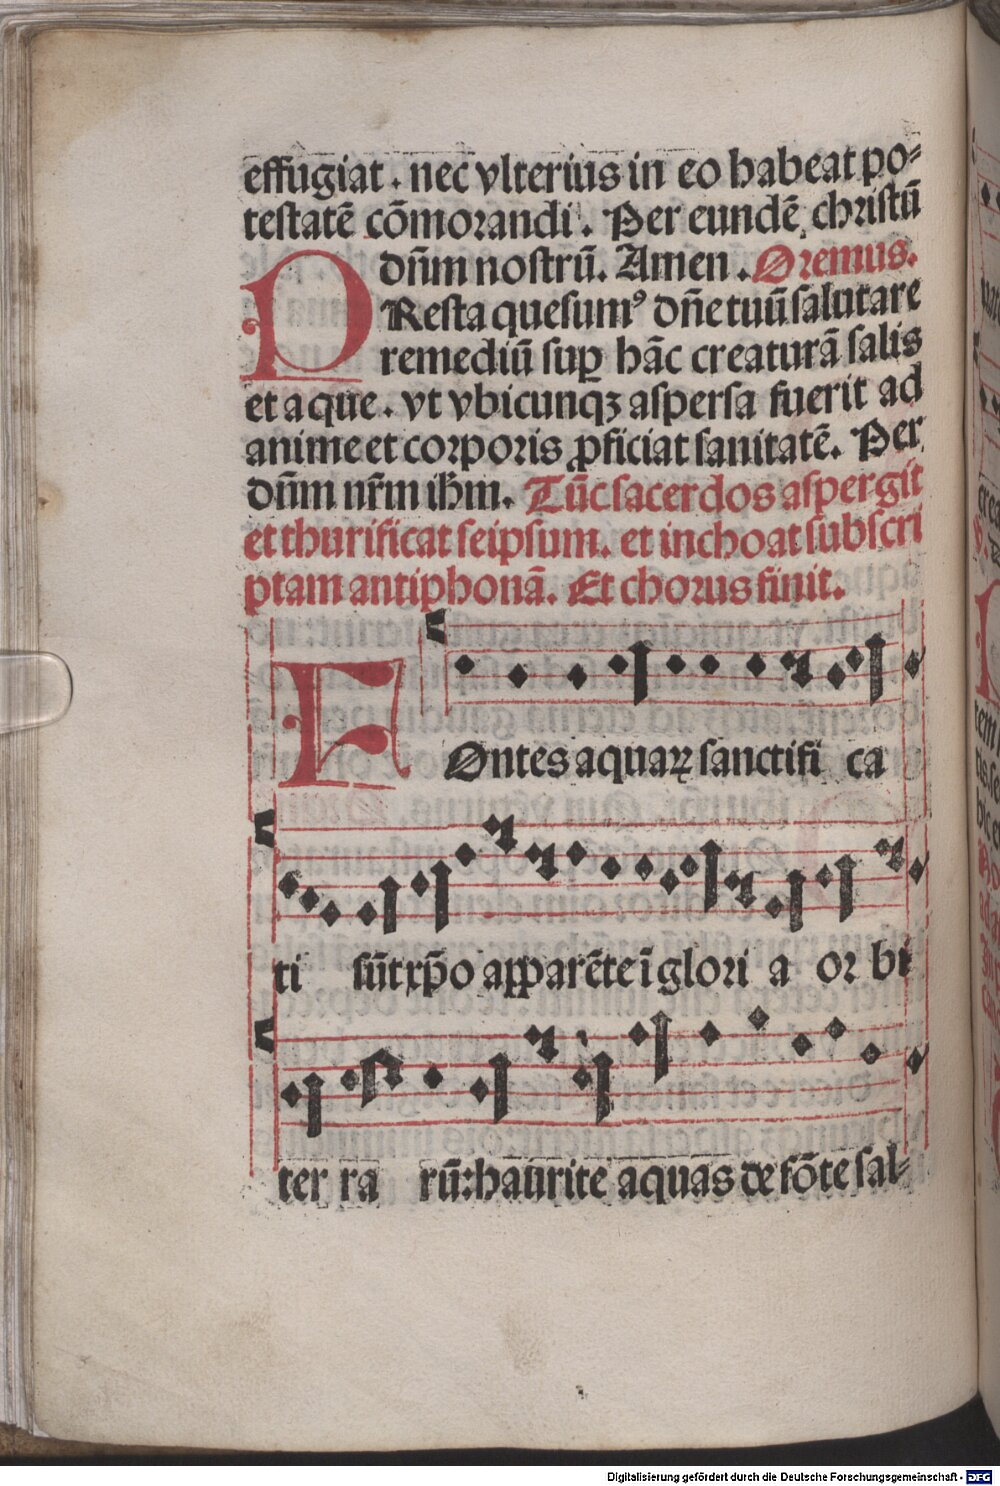 effugiat . nec vlterius in eo habeat po⸗
testatē cōmorandi . Per eundē christū
dn̄m nostrū. Amen . Oremus.
PResta quesumꝰ dn̄e tuū salutare
remediū suꝑ hāc creaturā salis
et aque . vt vbicunqꝫ aspersa fuerit ad
anime et corporis ꝓficiat sanitatē. Per
dn̄m nr̄m ihm̄. Tūc sacerdos aspergit
et thurificat seipsum. et inchoat subscri
ptam antiphonā. Et chorus finit.
FOntes aquaꝝ sanctifi ca
ti sūt xp̄o apparēte ī glori a or bi
ter ra rū: haurite aquas de fōte sal⸗
Digitalisierung gefördert durch die Deutsche Forschungsgemeinschaft - DFG